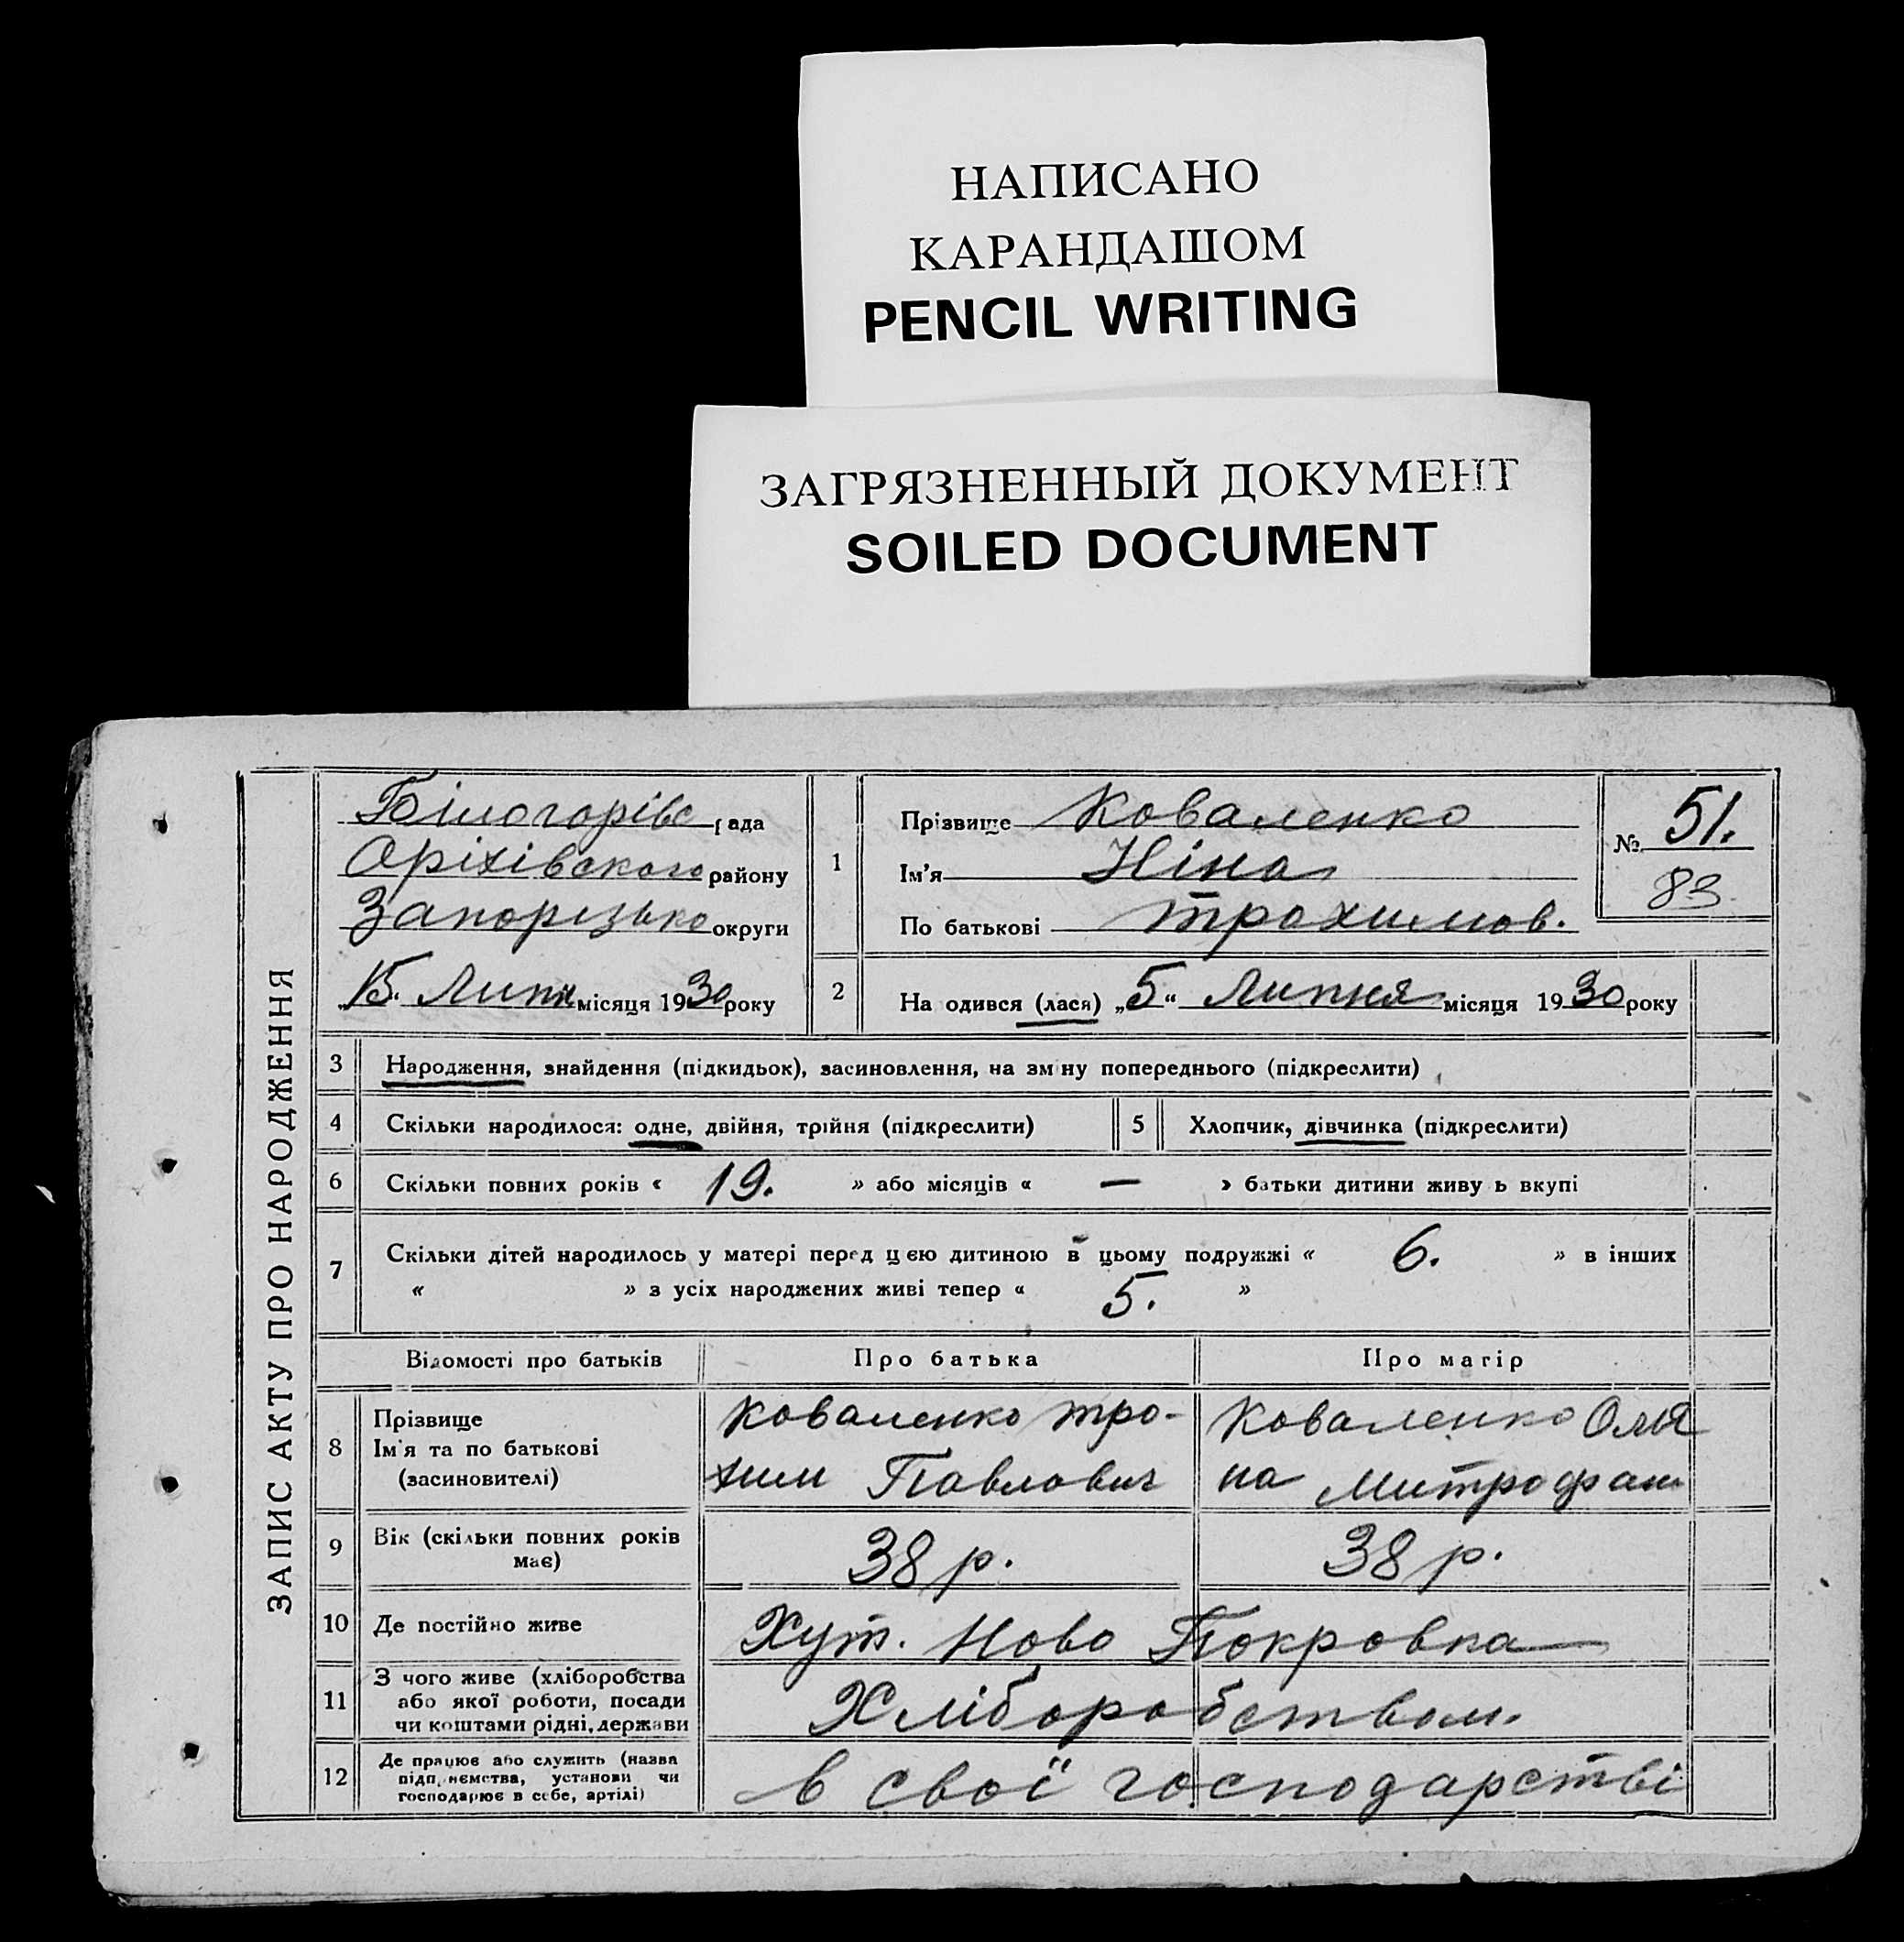 НАПИСАНО
КАРАНДАШОМ
PENCIL WRITING
ЗАГРЯЗНЕННЫЙ ДОКУМЕНТ
SOILED DOCUMENT
ЗАПИС АКТУ ПРО НАРОДЖЕННЯ
Білогорівс рада
Оріхівського району
Запорізько округи
15. Липня місяця 1930 року
1
Прізвище Коваленко
Ім'я Ніна
По батькові Трохимов.
№ 51.
83
2
На одився (лася) „5“ Липня місяця 1930 року
3 Народження, знайдення (підкидьок), засиновлення, на зм ну попереднього (підкреслити)
4 Скільки народилося: одне, двійня, трійня (підкреслити) 5 Хлопчик, дівчинка (підкреслити)
6 Скільки повних років « 19. » або місяців « — » батьки дитини живу ь вкупі
7 Скільки дітей народилось у матері перед цією дитиною в цьому подружжі « 6. » в інших
« » з усіх народжених живі тепер « 5. »
Відомості про батьків Про батька Про матір
8 Прізвище
Ім'я та по батькові
(засиновителі)
Коваленко Тро-
хим Павлович
Коваленко Оля
на Митрофан
9 Вік (скільки повних років
має)
38 р. 38 р.
10 Де постійно живе Хут. Ново Покровка
11 З чого живе (хліборобства
або якої роботи, посади
чи коштами рідні, держави
Хліборобством.
12 Де працює або служить (назва
підп ємства, установи чи
господарює в себе, артілі)
в свої господарстві